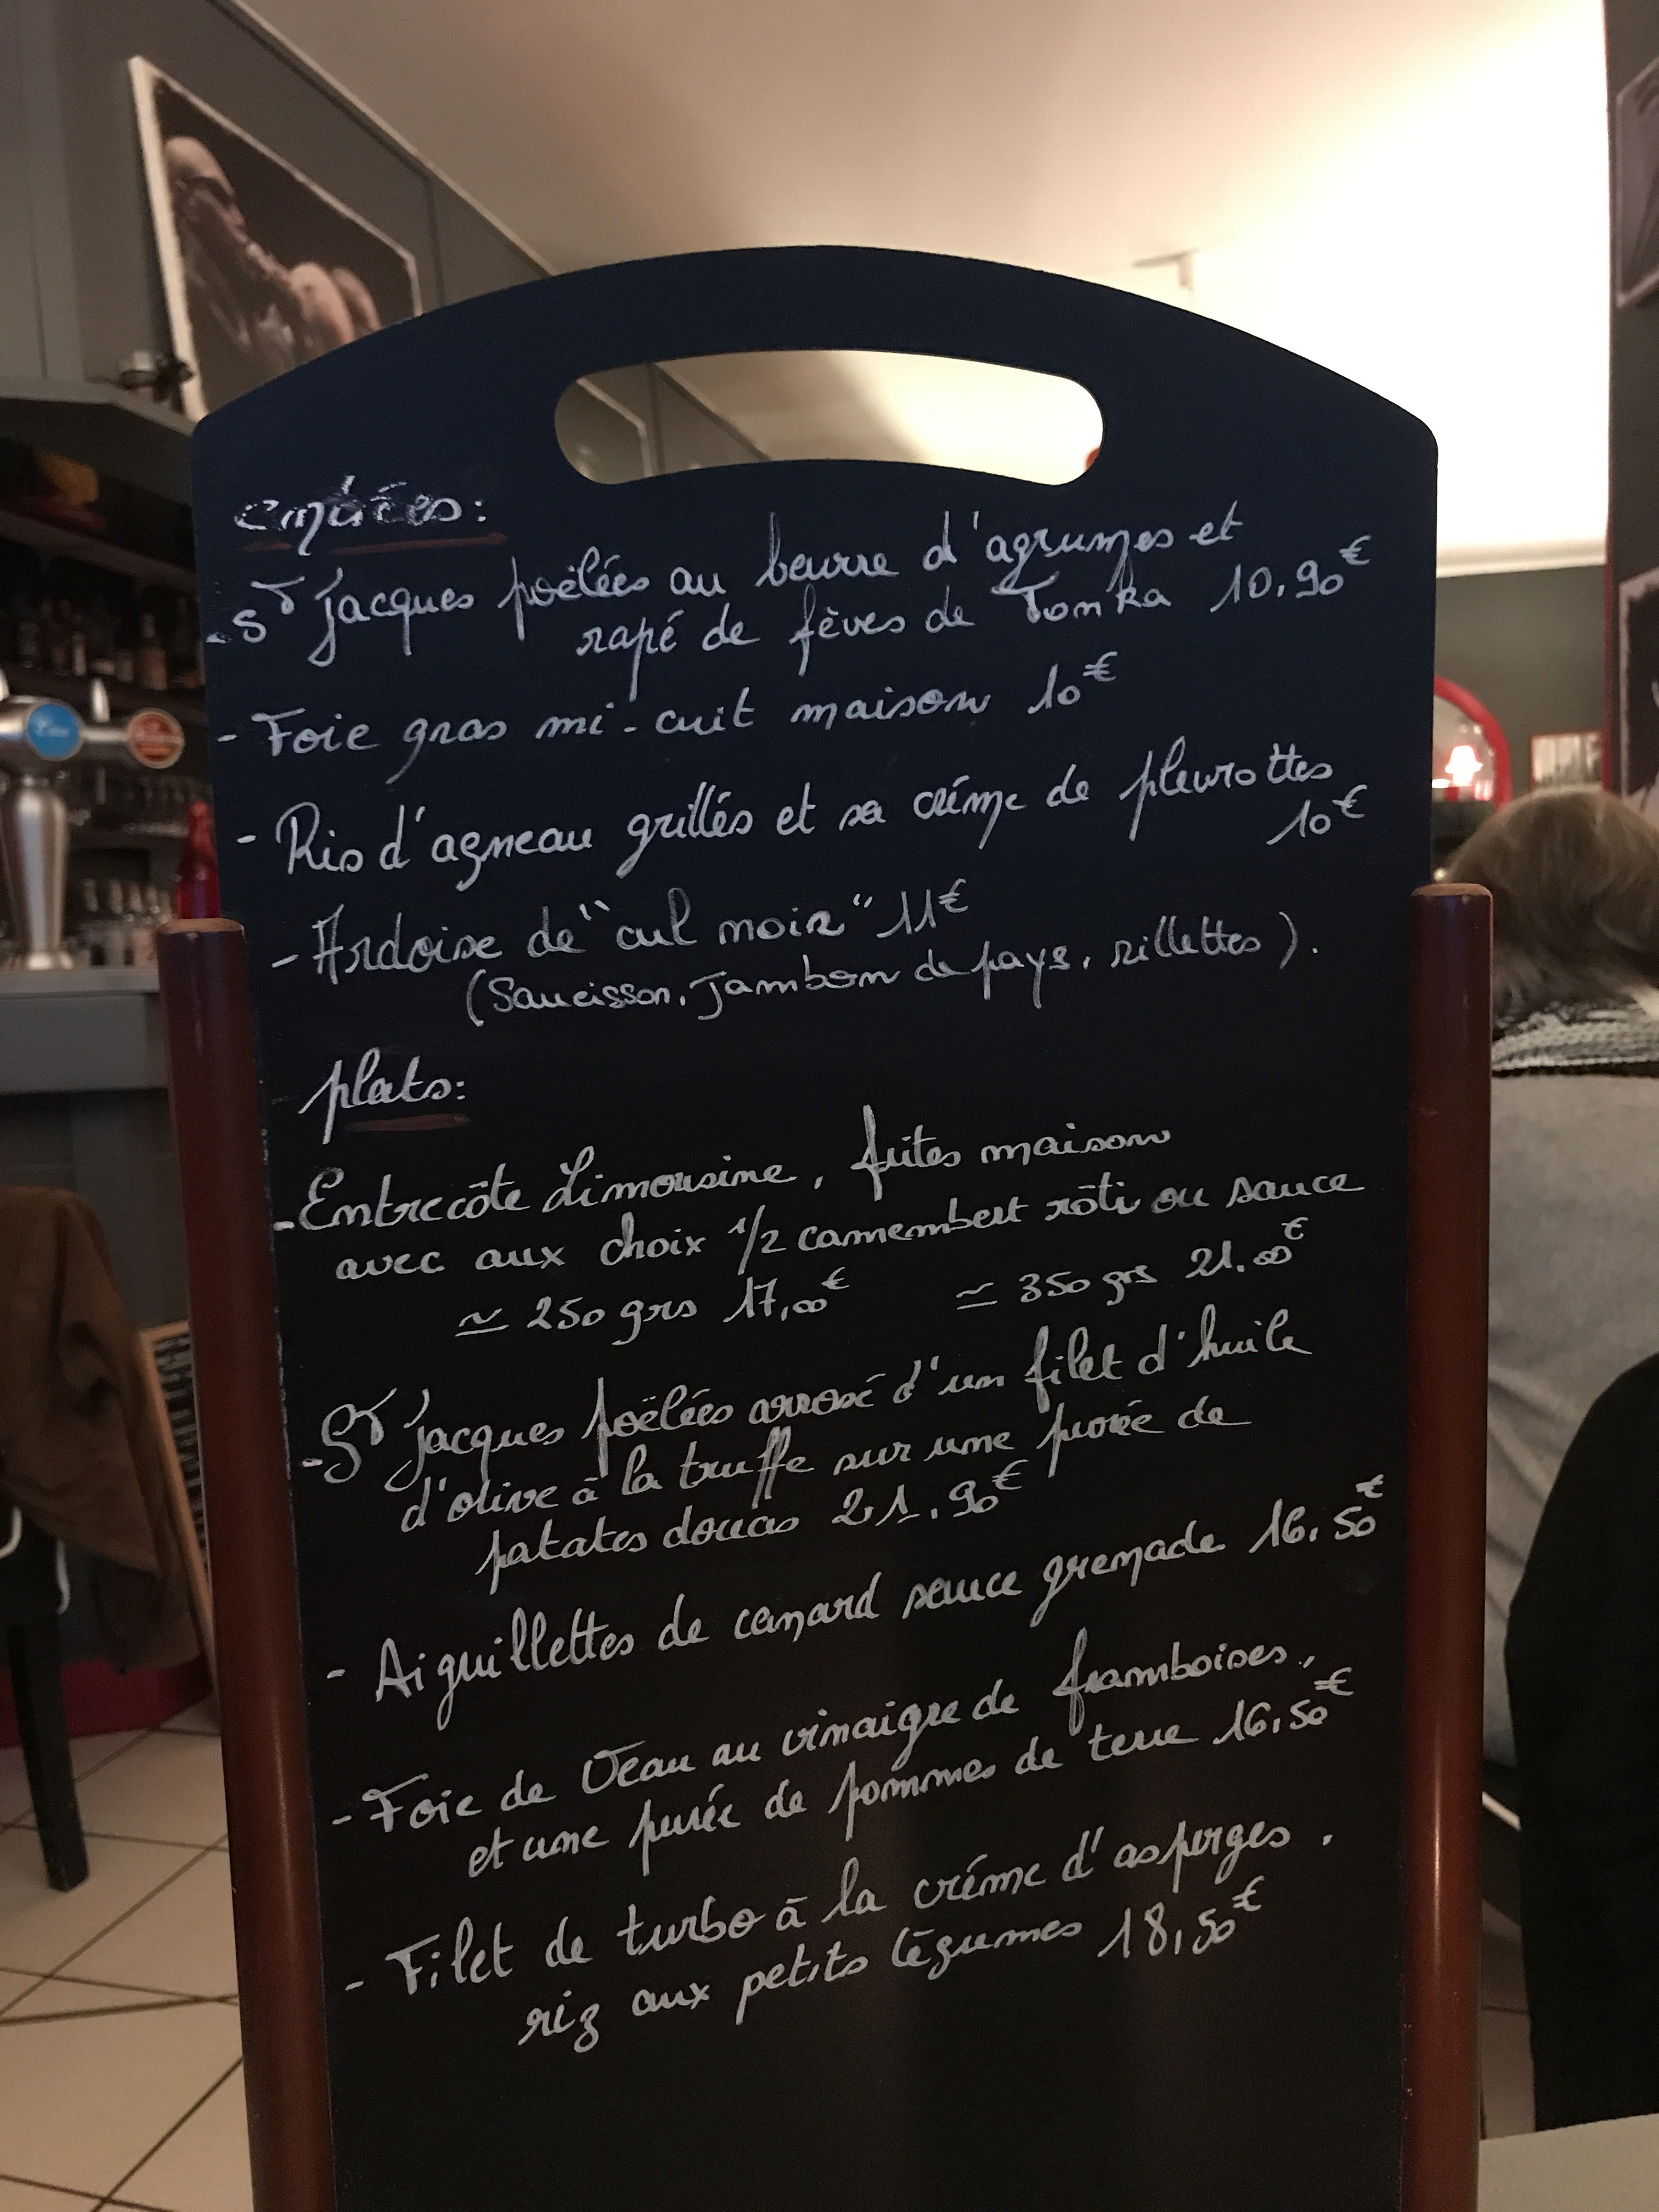 entrées:
- St jacques poëlées au beurre d'agrumes et
rapé de fèves de Tonka 10,90€
- Foie gras mi-cuit maison 10€
- Ris d'agneau grillés et sa crème de pleurottes
10€
- Ardoise de "cul noir" 11€
(Saucisson, Jambon de pays, rillettes).
plats:
- Entrecôte Limousine, frites maison
avec aux choix 1/2 camembert rôti ou sauce
≃ 250 grs 17,00€ ≃ 350 grs 21.00€
- St jacques poëlées arrosé d'un filet d'huile
d'olive à la truffe sur une purée de
patates douces 21,90€
- Aiguillettes de canard sauce grenade 16,50€
- Foie de Veau au vinaigre de framboises,
et une purée de pommes de terre 16,50€
- Filet de turbo à la créme d'asperges.
riz aux petits légumes 18,50€
Eau